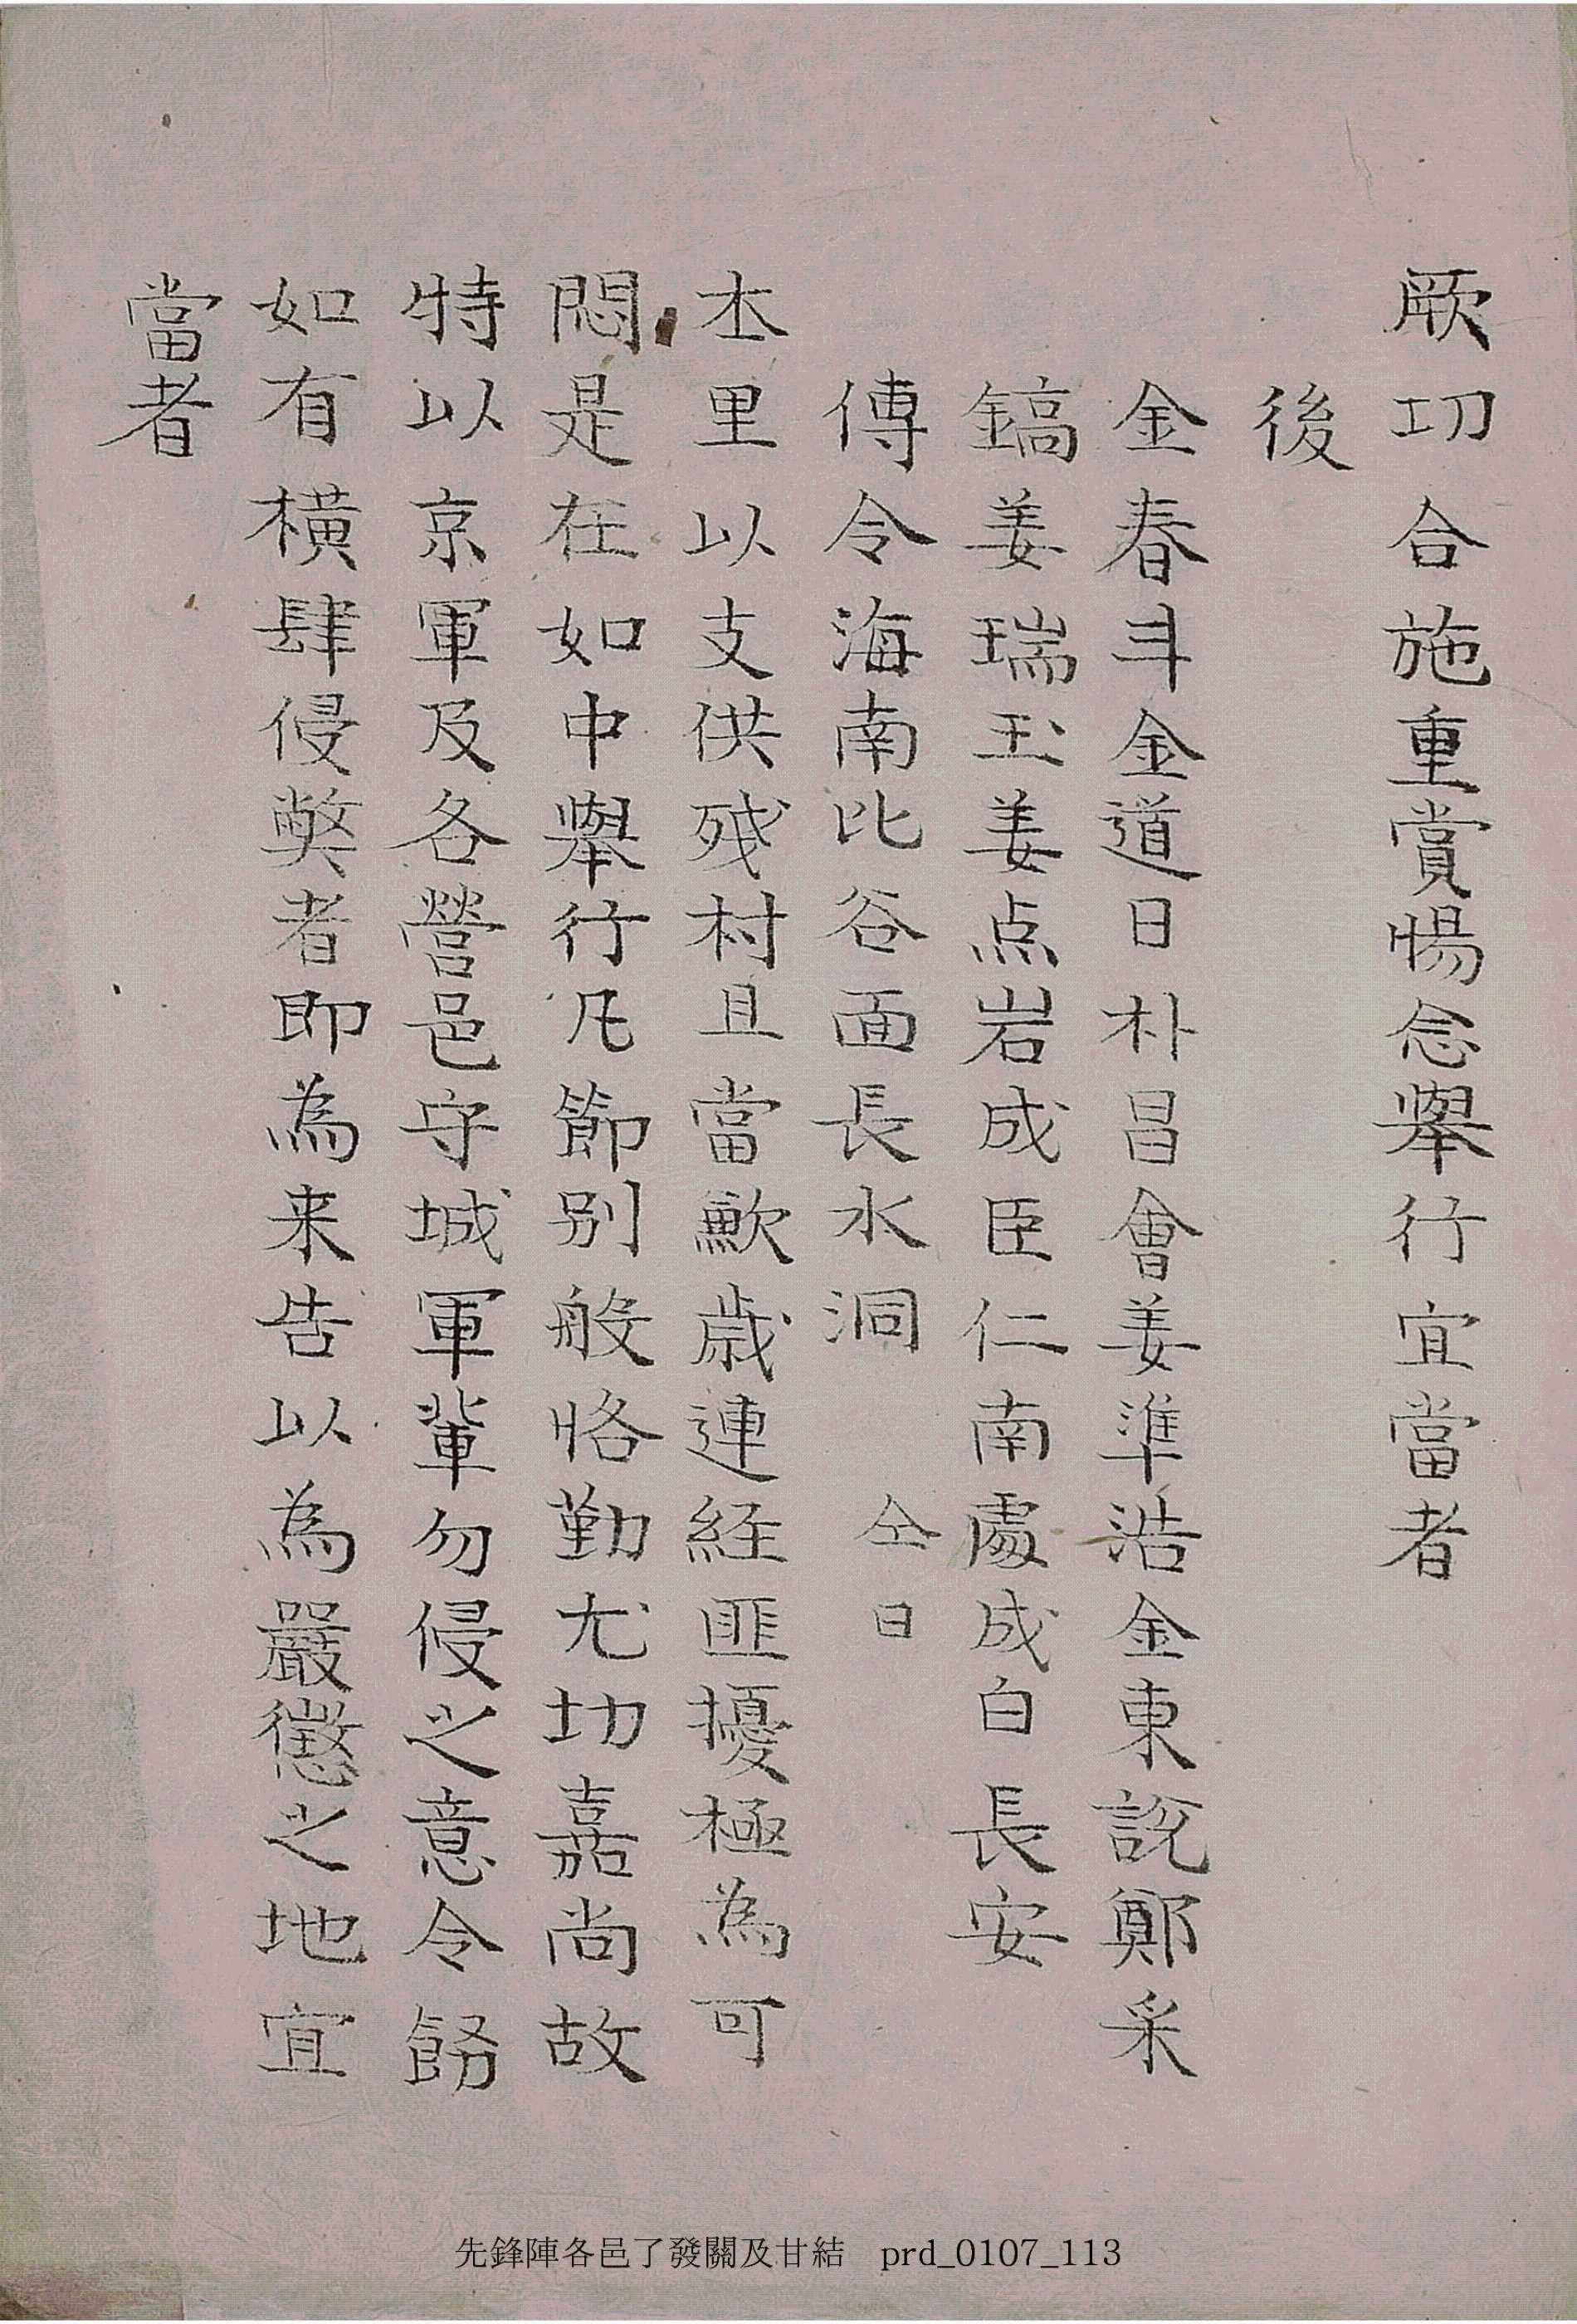 厥功合施重賞惕念擧行宜當者
後
金春斗金道日朴昌會姜準浩金東說鄭采
鎬姜瑞玉姜点岩成臣仁南處成白長安
傳令海南比谷面長水洞 仝日
本里以支供残村且當歉歳連経匪擾極為可
悶是在如中擧行凡節别般恪勤尤功嘉尚故
特以京軍及各營邑守城軍輩勿侵之意令飭
如有横肆侵獘者即為来告以為嚴懲之地宜
當者
先鋒陣各邑了發關及甘結 prd_0107_113